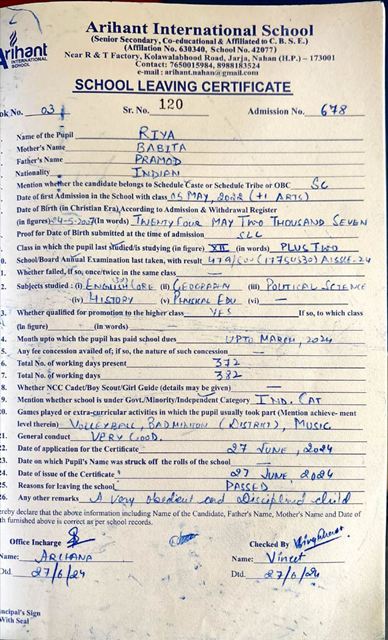 Arihant International School
(Senior Secondary, Co-educational & Affiliated to C. B. S. E.)
(Affilation No. 630340, School No. 42077)
Near R & T Factory, Kolawalabhood Road, Jarja, Nahan (H.P.) – 173001
Contact: 7650015984, 8988183524
e-mail : arihant.nahan@gmail.com
Arihant
INTERNATIONAL
SCHOOL
SCHOOL LEAVING CERTIFICATE
ok No. 03 Sr. No. 120 Admission No. 678
Name of the Pupil RIYA
Mother's Name BABITA
Father's Name PRAMOD
Nationality INDIAN
Mention whether the candidate belongs to Schedule Caste or Schedule Tribe or OBC SC
Date of first Admission in the School with class 05 MAY, 2022 (+1 ARTS)
Date of Birth (in Christian Era) According to Admission & Withdrawal Register
(in figures) 24-5-2007 (in Words) TWENTY FOUR MAY TWO THOUSAND SEVEN
Proof for Date of Birth submitted at the time of admission SLC
Class in which the pupil last studied/is studying (in figure) XII (in words) PLUS TWO
0. School/Board Annual Examination last taken, with result AISSE-24
1. Whether failed, if so, once/twice in the same class —
2. Subjects studied : (i) ENGLISH CORE (ii) GEOGRAPHY (iii) POLITICAL SCIENCE
(iv) HISTORY (v) PHYSICAL EDU (vi) —
3. Whether qualified for promotion to the higher class YES If so, to which class
(In figure) (in words) —
4. Month upto which the pupil has paid school dues UPTO MARCH, 2024
5. Any fee concession availed of; if so, the nature of such concession —
6. Total No. of working days present 372
7. Total No. of working days 382
8. Whether NCC Cadet/Boy Scout/Girl Guide (details may be given) —
9. Mention whether school is under Govt./Minority/Independent Category IND. CAT
20. Games played or extra-curricular activities in which the pupil usually took part (Mention achieve- ment
level therein) VOLLEYBALL, BADMINTON (DISTRICT), MUSIC
21. General conduct VERY GOOD.
22. Date of application for the Certificate 27 JUNE, 2024
23. Date on which Pupil's Name was struck off the rolls of the school —
24. Date of issue of the Certificate 27 JUNE, 2024
25. Reasons for leaving the school PASSED
26. Any other remarks A very obedient and Disciplined child
ereby declare that the above information including Name of the Candidate, Father's Name, Mother's Name and Date of
th furnished above is correct as per school records.
Office Incharge Checked By
Name: ARCHANA Name: Vineet
Dtd. 27/6/24 Dtd. 27/6/24
incipal's Sign
With Seal